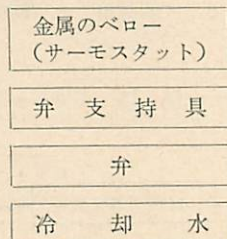 金属のベロー
(サーモスタット)
弁支持具
弁
冷却水